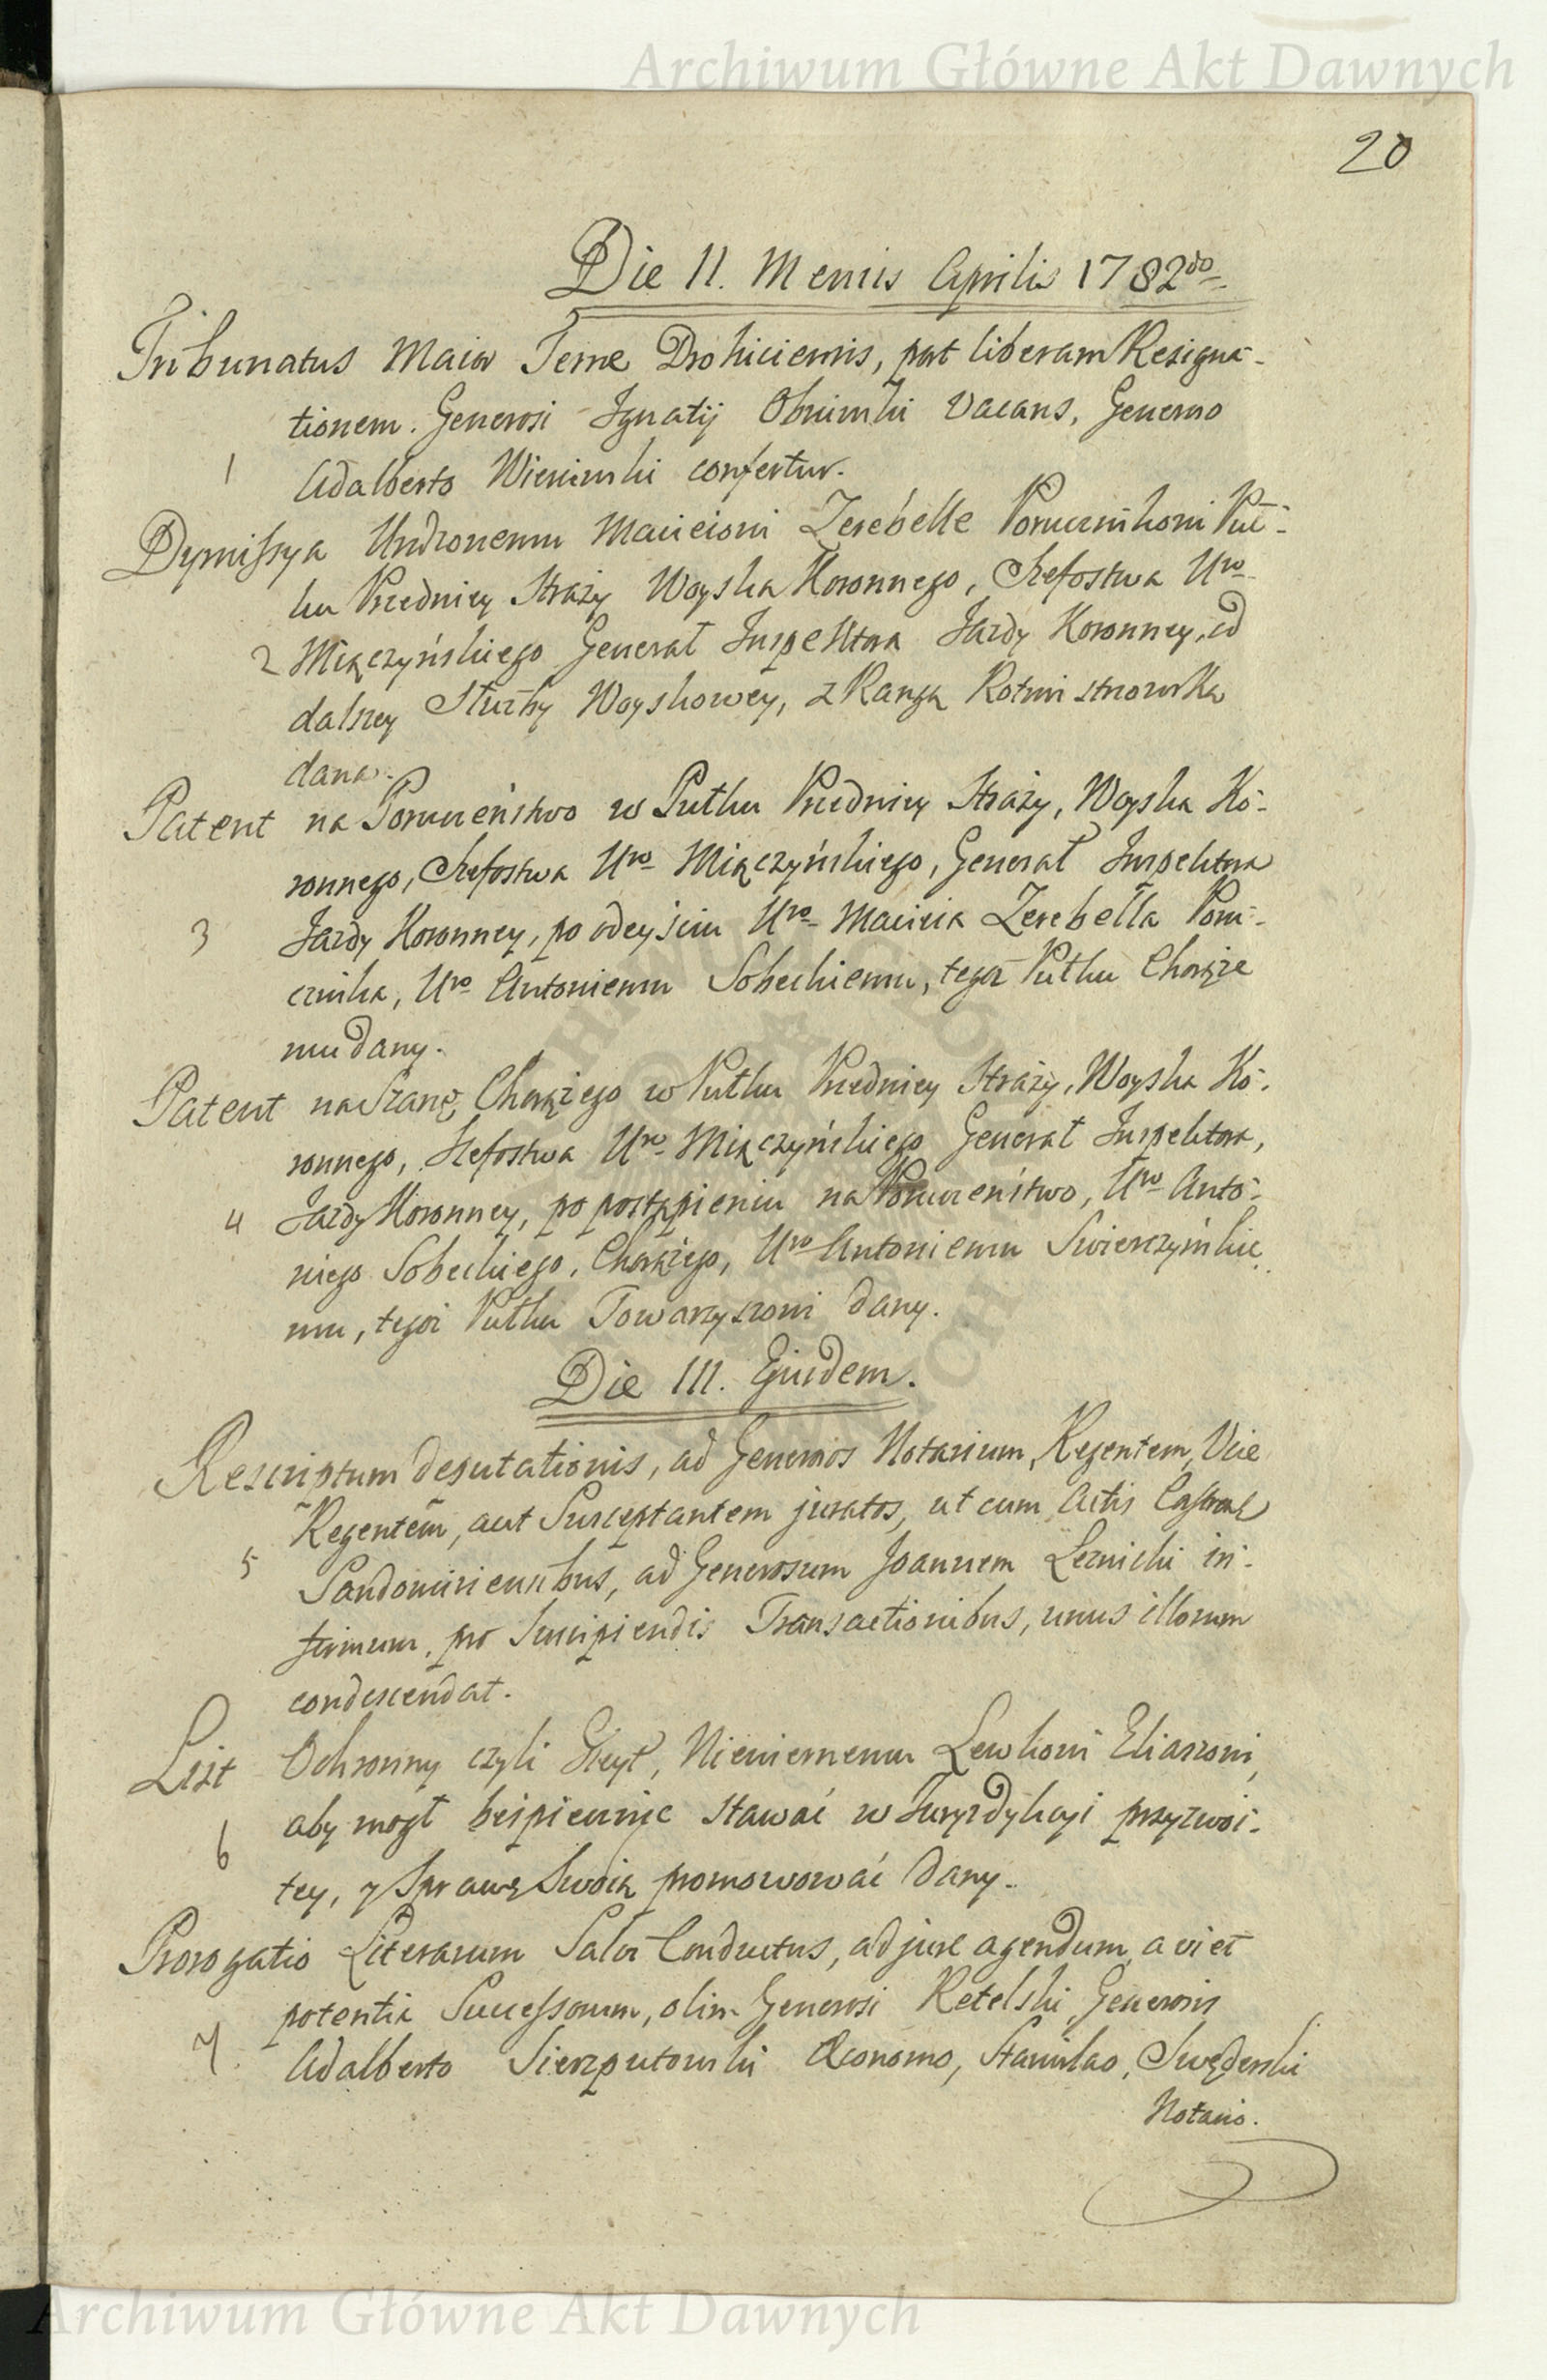 Archiwum Główne Akt Dawnych
20
Die II. Mensis Aprilis 1782do
Tribunatus Maior Terrae Drohiciensis, post liberam Resigna-
tionem Generosi Ignatij Obniński Vacans, Generoso
1 Adalberto Wieniński confertur.
Dymissya Urodzonemu Macieiowi Zerebelle Porucznikowi Puł-
ku Przedniey Straży Woyska Koronnego, Szefostwa Uro
2 Miączyńskiego Generał Inspektora Jazdy Koronney, od
dalszey Służby Woyskowey, z Rangą Rotmistrzowską
dana.
Patent na Porucznistwo w Pułku Przedniey Straży, Woyska Ko-
ronnego, Szefostwa Uro Miączyńskiego, Generał Inspektora
3 Jazdy Koronney, po odeyściu Uro Macieia Zerebełła Poru-
cznika, Uro Antoniemu Sobeckiemu, tegoż Pułku Chorąże
mu dany.
Patent na Rangę Chorążego w Pułku Przedniey Straży, Woyska Ko-
ronnego, Szefostwa Uro Miączyńskiego Generał Inspektora,
4 Jazdy Koronney, po postąpieniu na Porucznistwo, Uro Anto-
niego Sobeckiego, Chorążego, Uro Antoniemu Swierczyńskie
mu, tegoż Pułku Towarzyszowi dany.
Die III. Ejusdem.
Rescriptum deputationis, ad Generosos Notarium, Regentem, Vice
Regentem, aut Susceptantem juratos, ut cum Actis Castren
5 Sandomiriensibus, ad Generosum Joannem Leznicki in-
firmum, pro Suscipiendis Transactionibus, unus illorum
condescendat.
List Ochronny czyli Gleyt, Niewiernemu Lewkowi Eliaszowi,
aby mogł beśpiecznie stawać w Juryzdykcyi przyzwoi-
6 tey, y Sprawę Swoię promowować dany.
Prorogatio Literarum Salvi Conductus, ad jure agendum, a vi et
potentia Successorum, olim Generosi Ketelski, Generosis
7. Adalberto Sierzputowski Oeconomo, Stanislao Swęderski
Notario.
Archiwum Główne Akt Dawnych